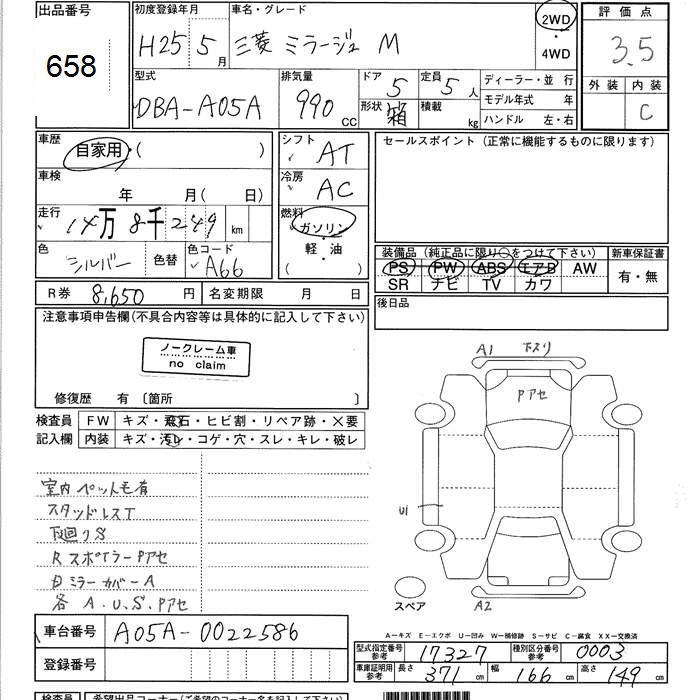 出品番号
658
初度登録年月
H25 5月
車名・グレード
三菱 ミラージュ M
2WD
・
4WD
評価点
3.5
外装 内装
C
型式
DBA-A05A
排気量
990 CC
ドア 5
形状 箱
定員 5人
積載 kg
ディーラー・並行
モデル年式 年
ハンドル 左・右
車歴
自家用・( )
車検
年 月( 日)
走行
14万8千249 km
色
シルバー
色替
色コード
A66
シフト
AT
冷房
AC
燃料
ガソリン
・
軽・油
( )
セールスポイント(正常に機能するものに限ります)
装備品(純正品に限り○をつけて下さい)
PS PW ABS エアB AW
SR ナビ TV カワ
新車保証書
有・無
後日品
R券 8,650円
名変期限 月 日
注意事項申告欄(不具合内容等は具体的に記入して下さい)
ノークレーム車
no claim
修復歴 有〔箇所 〕
検査員
記入欄
FW キズ・飛石・ヒビ割・リペア跡・×要
内装 キズ・汚レ・コゲ・穴・スレ・キレ・破レ
室内ペット毛有
スタッドレスT
下廻りS
RスポイラーPアセ
日ミラーカバーA
各A.U.S.Pアセ
A1 下スリ
Pアセ
U1
A2
スペア
車台番号 A05A-0022586
登録番号
A-キズ E-エクボ U-凹み W-補修跡 S-サビ C-腐食 XX-交換済
型式指定番号
参考
17327
種別区分番号
参考
0003
車庫証明用
参考
長さ 371cm 幅 166cm 高さ 149cm
検査員
希望出品コーナー(ご希望のコーナー名を記入して下さい)